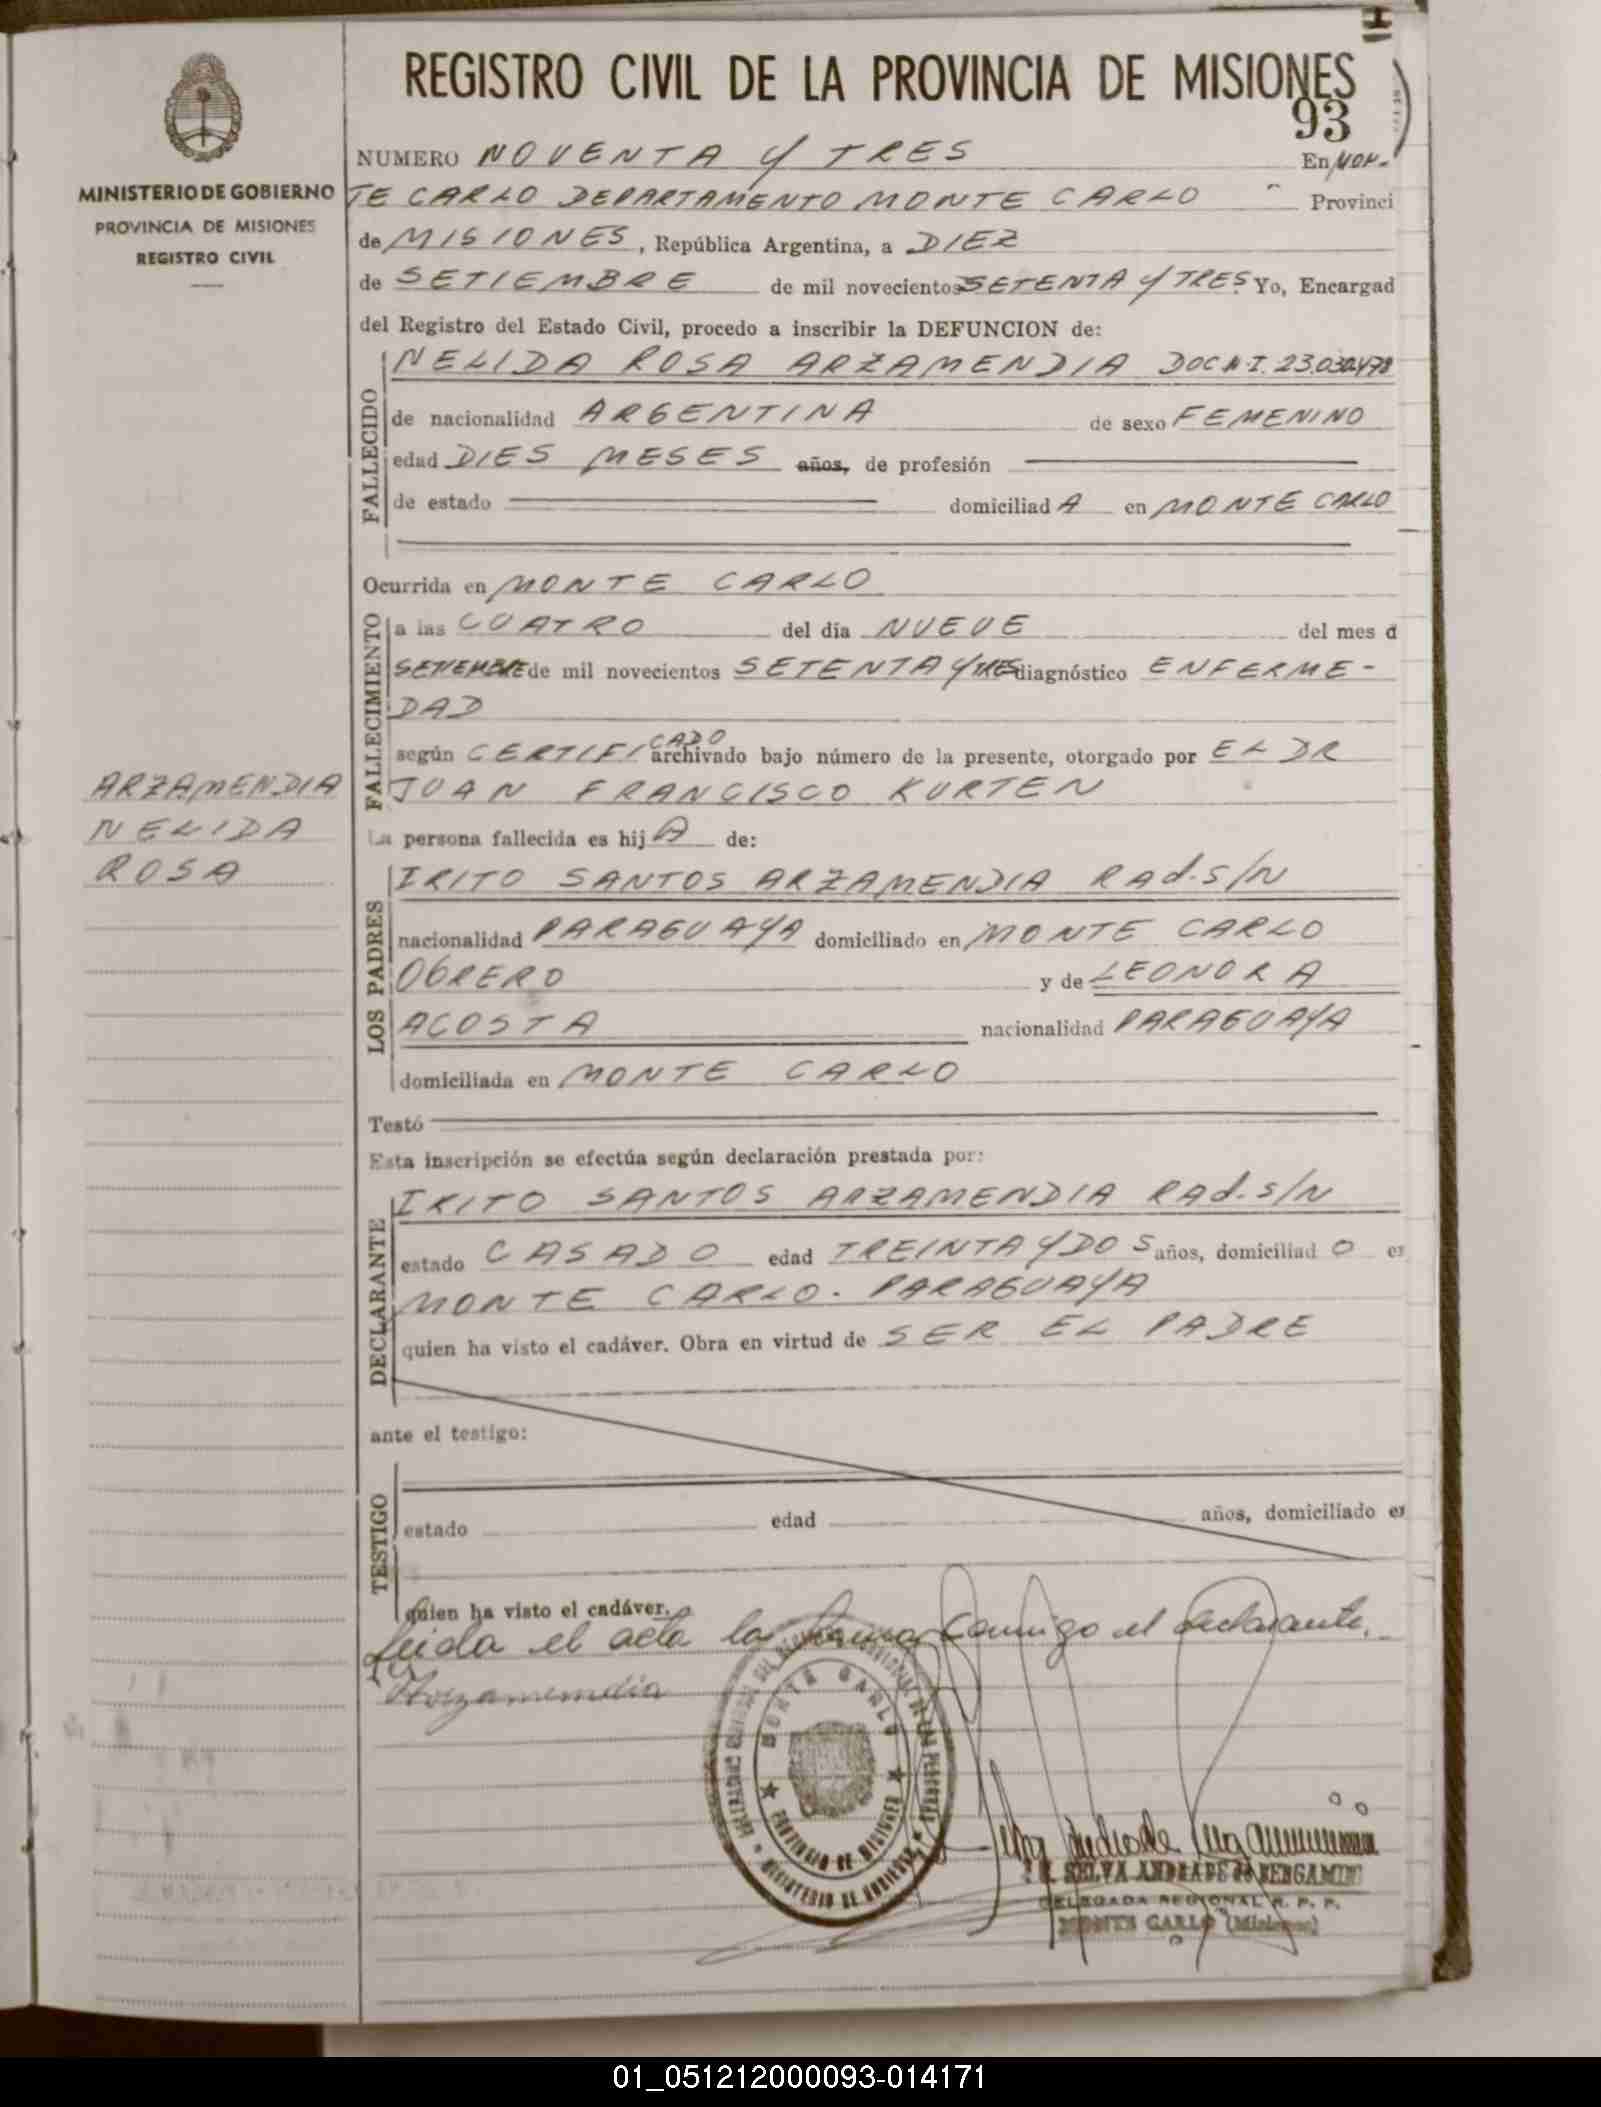 REGISTRO CIVIL DE LA PROVINCIA DE MISIONES
93
MINISTERIO DE GOBIERNO
PROVINCIA DE MISIONES
REGISTRO CIVIL
NUMERO NOVENTA Y TRES En MON-
TE CARLO DEPARTAMENTO MONTE CARLO Provinci
de MISIONES, República Argentina, a DIEZ
de SETIEMBRE de mil novecientos SETENTA Y TRES Yo, Encargad
del Registro del Estado Civil, procedo a inscribir la DEFUNCION de:
FALLECIDO
NELIDA ROSA ARZAMENDIA DOC N.I.
de nacionalidad ARGENTINA de sexo FEMENINO
edad DIES MESES años, de profesión
de estado domiciliad A en MONTE CARLO
Ocurrida en MONTE CARLO
FALLECIMIENTO
a las CUATRO del día NUEVE del mes d
SETIEMBRE de mil novecientos SETENTA Y TRES diagnóstico ENFERME-
DAD
según CERTIFICADO archivado bajo número de la presente, otorgado por EL DR
JUAN FRANCISCO KURTEN
ARZAMENDIA
NELIDA
ROSA
La persona fallecida es hij A de:
LOS PADRES
IRITO SANTOS ARZAMENDIA RAd. S/N
nacionalidad PARAGUAYA domiciliado en MONTE CARLO
OBRERO y de LEONORA
ACOSTA nacionalidad PARAGUAYA
domiciliada en MONTE CARLO
Testó
Esta inscripción se efectúa según declaración prestada por:
DECLARANTE
IRITO SANTOS ARZAMENDIA RAd. S/N
estado CASADO edad TREINTA Y DOS años, domiciliad O en
MONTE CARLO. PARAGUAYA
quien ha visto el cadáver. Obra en virtud de SER EL PADRE
ante el testigo:
TESTIGO
estado edad años, domiciliado en
quien ha visto el cadáver.
Leida el acta la firma conmigo el declarante.
Arzamendia
MONTE CARLO
PROVINCIA DE MISIONES
MINISTERIO DE GOBIERNO
SELVA ANDRADE DE BERGAMINI
DELEGADA REGIONAL R. P. P.
MONTE CARLO (Misiones)
01_051212000093-014171